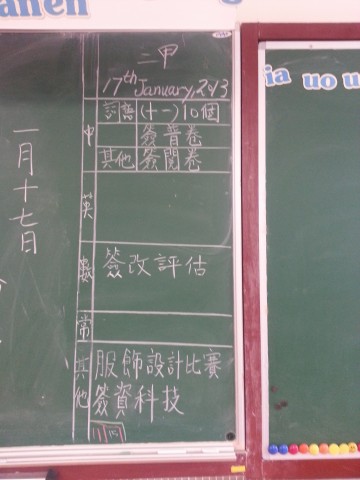 二甲
17th January, 2013
中
詞語(十一)10個
簽普卷
其他 簽閱卷
英
數
簽改評估
常
其他
服飾設計比賽
簽資科技
一月十七日
uo u